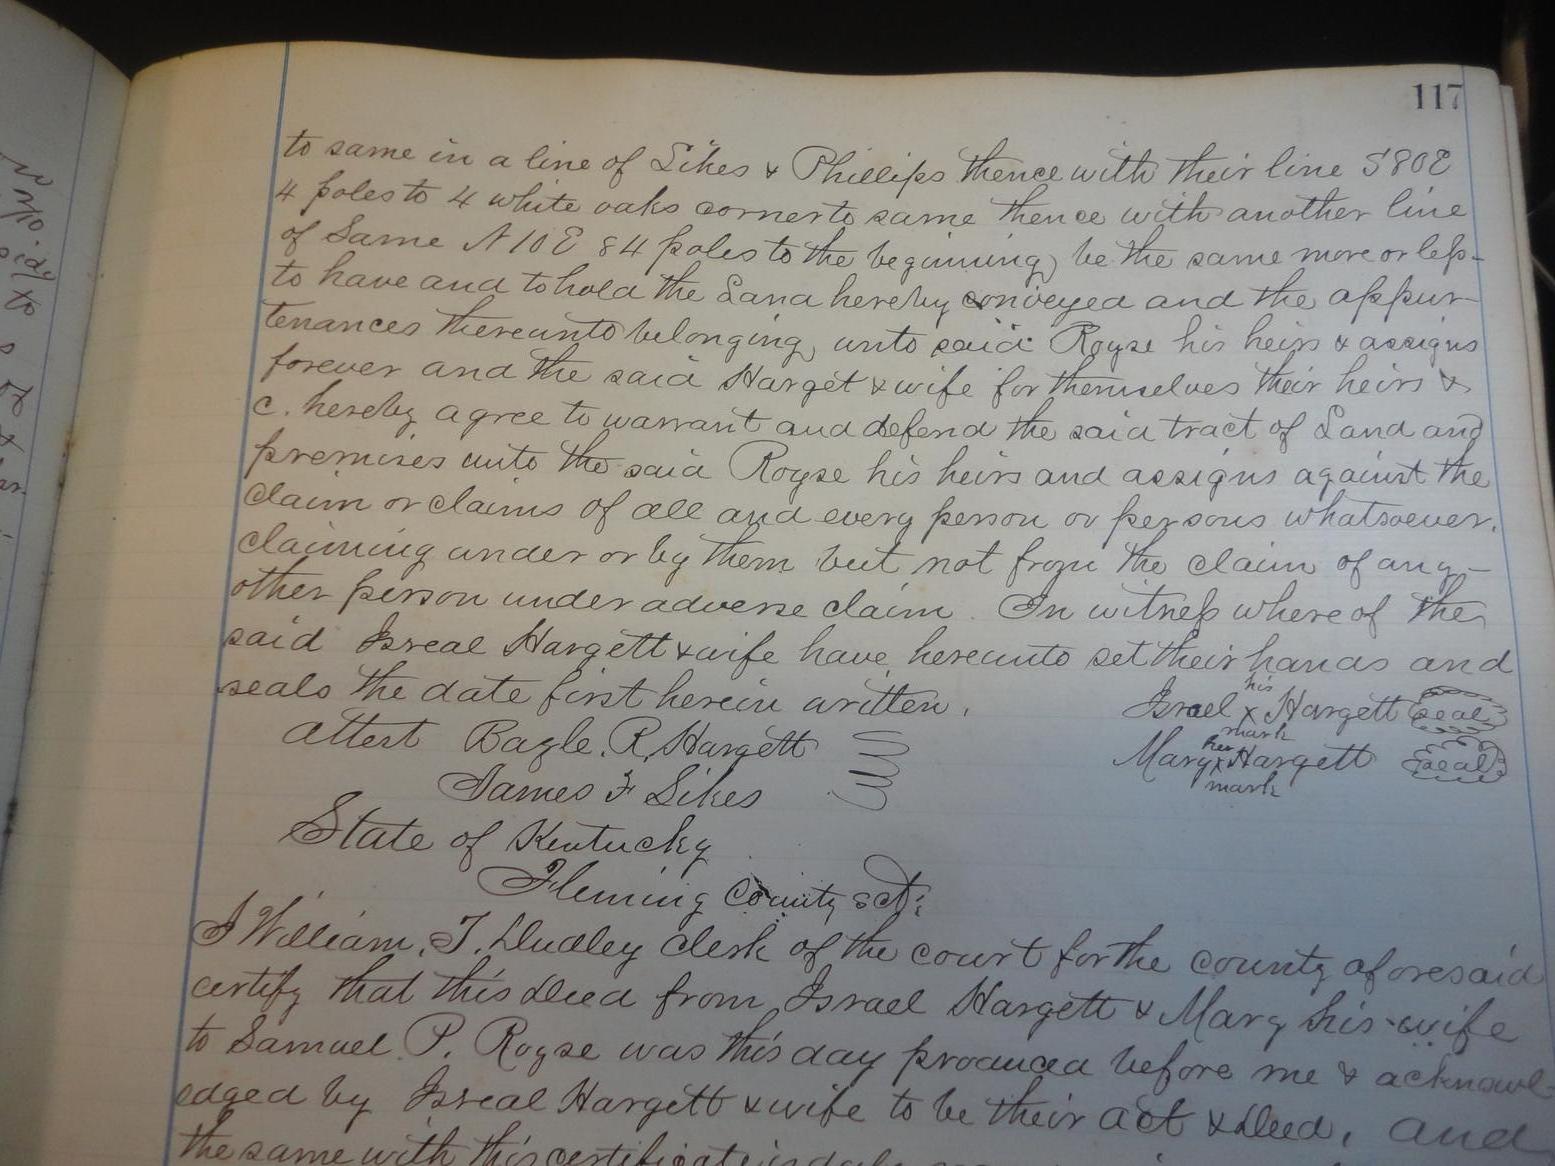 117
to same in a line of Sikes & Phillips thence with their line S80E
4 poles to 4 white oaks corner to same thence with another line
of Same N10E 84 poles to the beginning, be the same more or less
to have and to hold the Land hereby conveyed and the appur-
tenances thereunto belonging, unto said Royse his heirs & assigns
forever and the said Harget & wife for themselves their heirs &
c. hereby agree to warrant and defend the said tract of Land and
premises unto the said Royse his heirs and assigns against the
claim or claims of all and every person or persons whatsoever.
claiming under or by them but not from the claim of any-
other person under adverse claim. In witness where of the
said Isreal Hargett & wife have hereunto set their hands and
seals the date first herein written.
Israel his x mark Hargett seal
Attest Bazle. R. Hargett
Mary her x mark Hargett seal
James F Sikes
State of Kentucky
Fleming County sct:
I William. T. Dudley clerk of the court for the county aforesaid
certify that this Deed from Israel Hargett & Mary his wife
to Samuel. P. Royse was this day produced before me & acknowl-
edged by Isreal Hargett & wife to be their act & Deed, and
the same with this certificate is duly